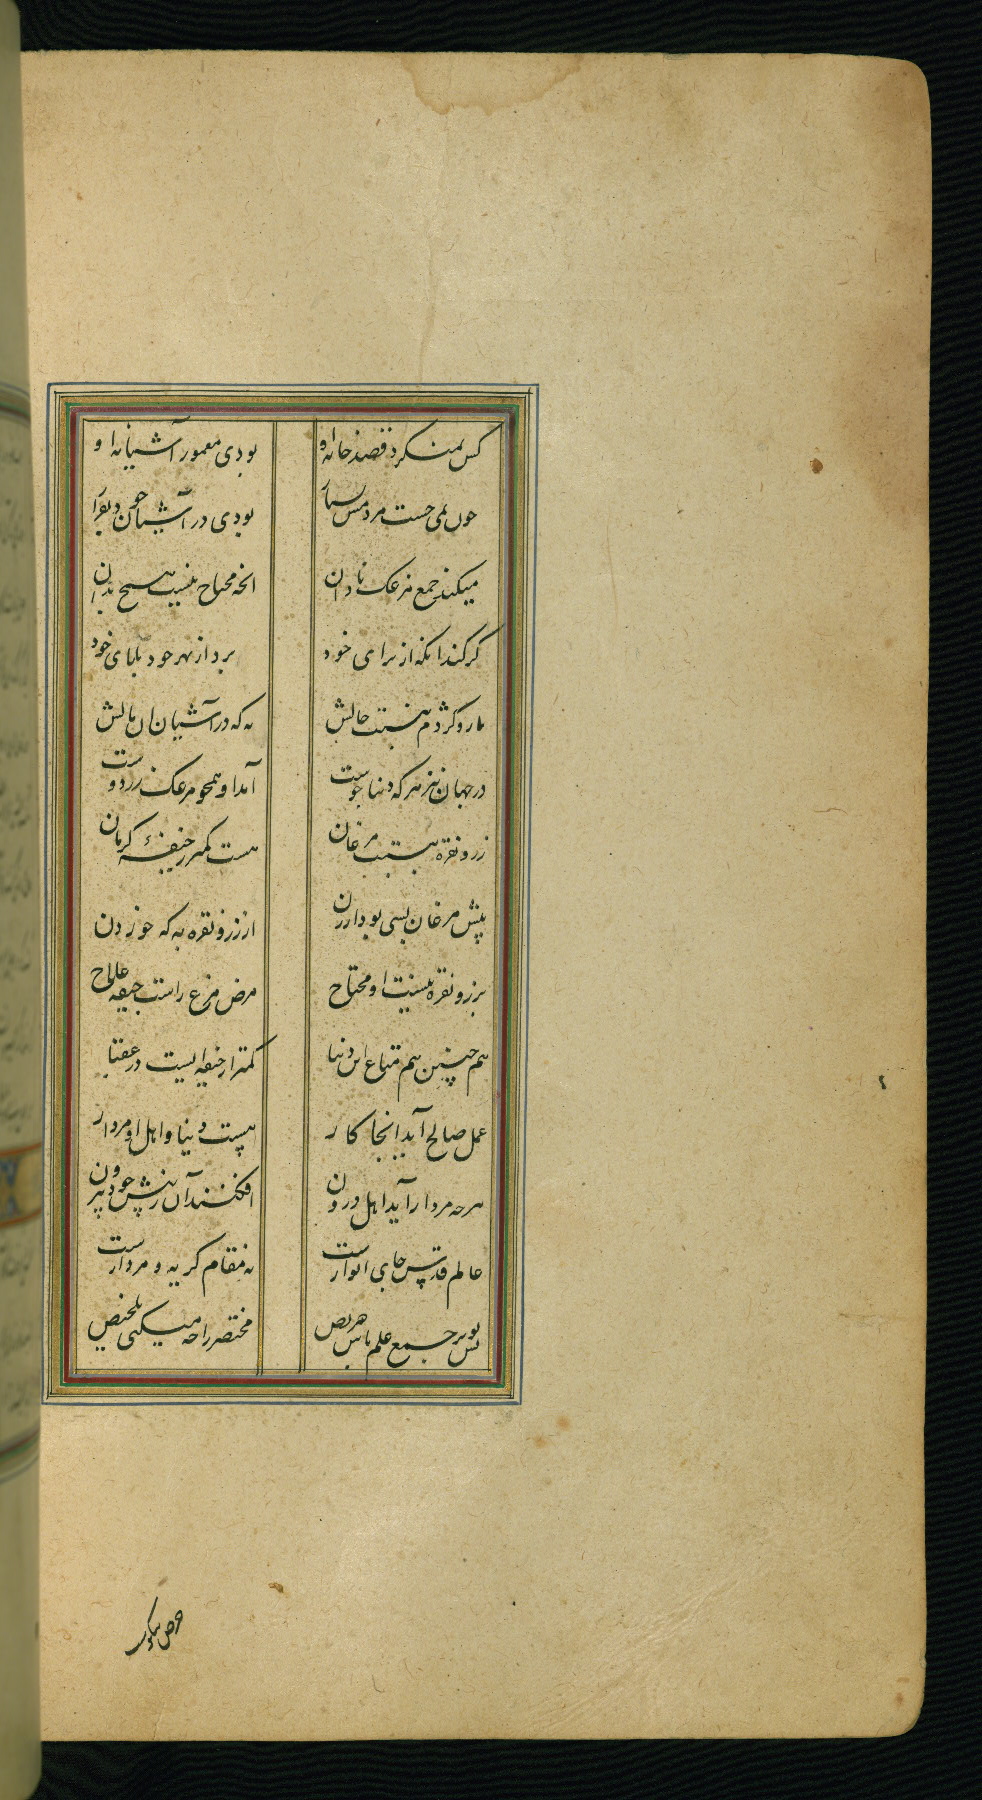 کس نمیکرد قصد خانه او بودی معمور آشیانه او
چون نمی جست مرد مس بسیار بودی در آشیان خود بقرار
میکند جمع مرغک نادان انچه محتاج نیست هیچ بدان
گر کند انکه از برای خود برد از بهر خود بلبای خود
مار و کژدم نیست حالش به که در آشیان ان بالش
در جهان نیز هر که دنیا جوست آمد او همچو مرغک زر دوست
زر و نقره نسبت مرغان هست کمتر ز جیفه کرمان
پیش مرغان بسی بود ارزن از زر و نقره به که خوردن
بزر و نقره نیست او محتاج مرض مرغ راست جیفه علاج
هم چنین هم متاع این دنیا کمتر از جیفه ایست در عقبا
عمل صالح آید انجا کار هست دنیا و اهل او مردار
هر چه مردار آید اهل درون افکنند آن ز پیش خود بیرون
عالم قدس جای انوارست نه مقام کریه و مردارست
پس تو بر جمع علم باش حریص مختصر را چه میکنی تلخیص
حرص نیکوست